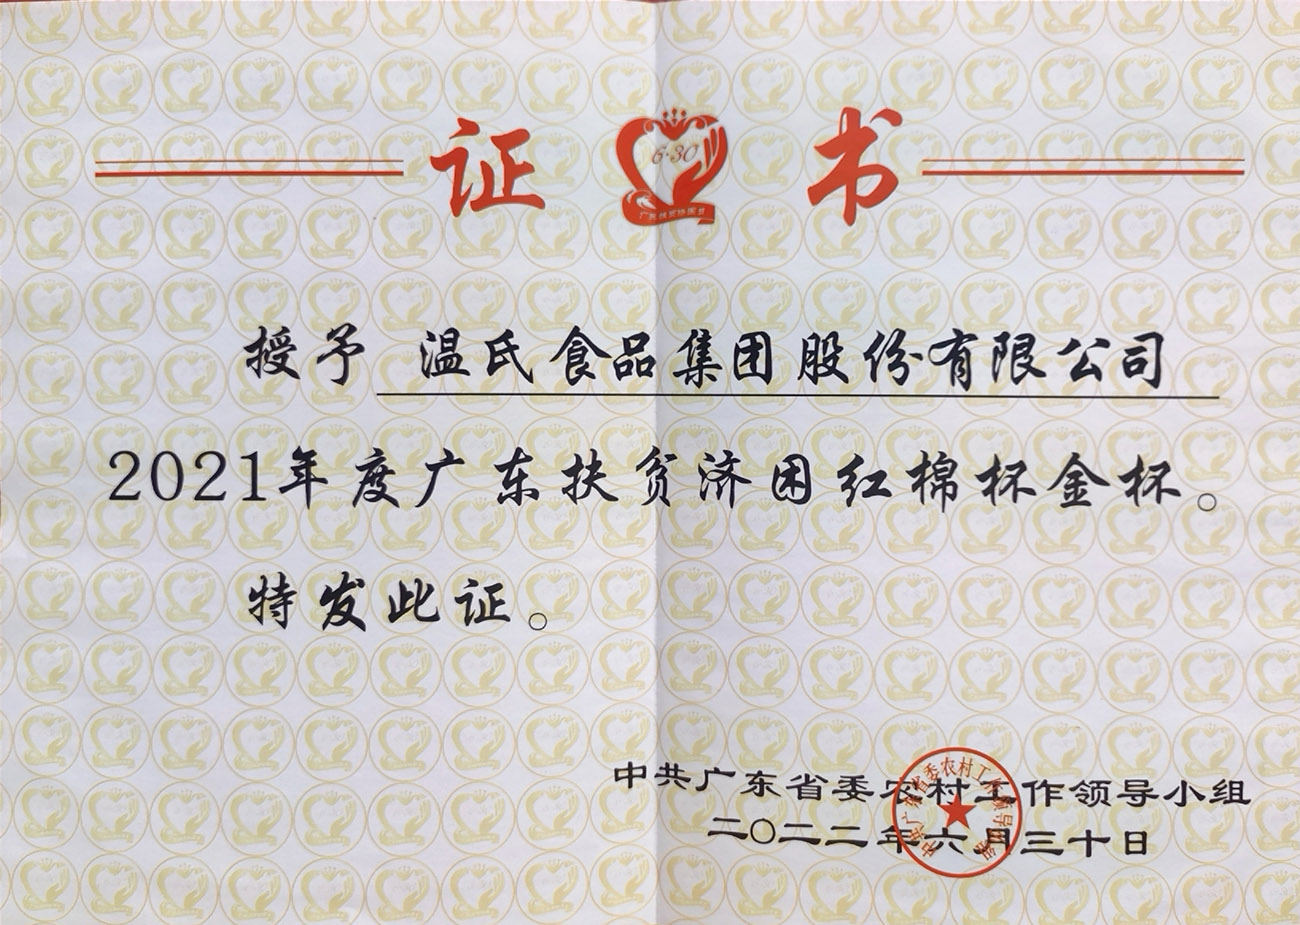 证 书
6·30
广东扶贫济困日
授予 温氏食品集团股份有限公司
2021年度广东扶贫济困红棉杯金杯。
特发此证。
中共广东省委农村工作领导小组
二〇二二年六月三十日
中共广东省委农村工作领导小组